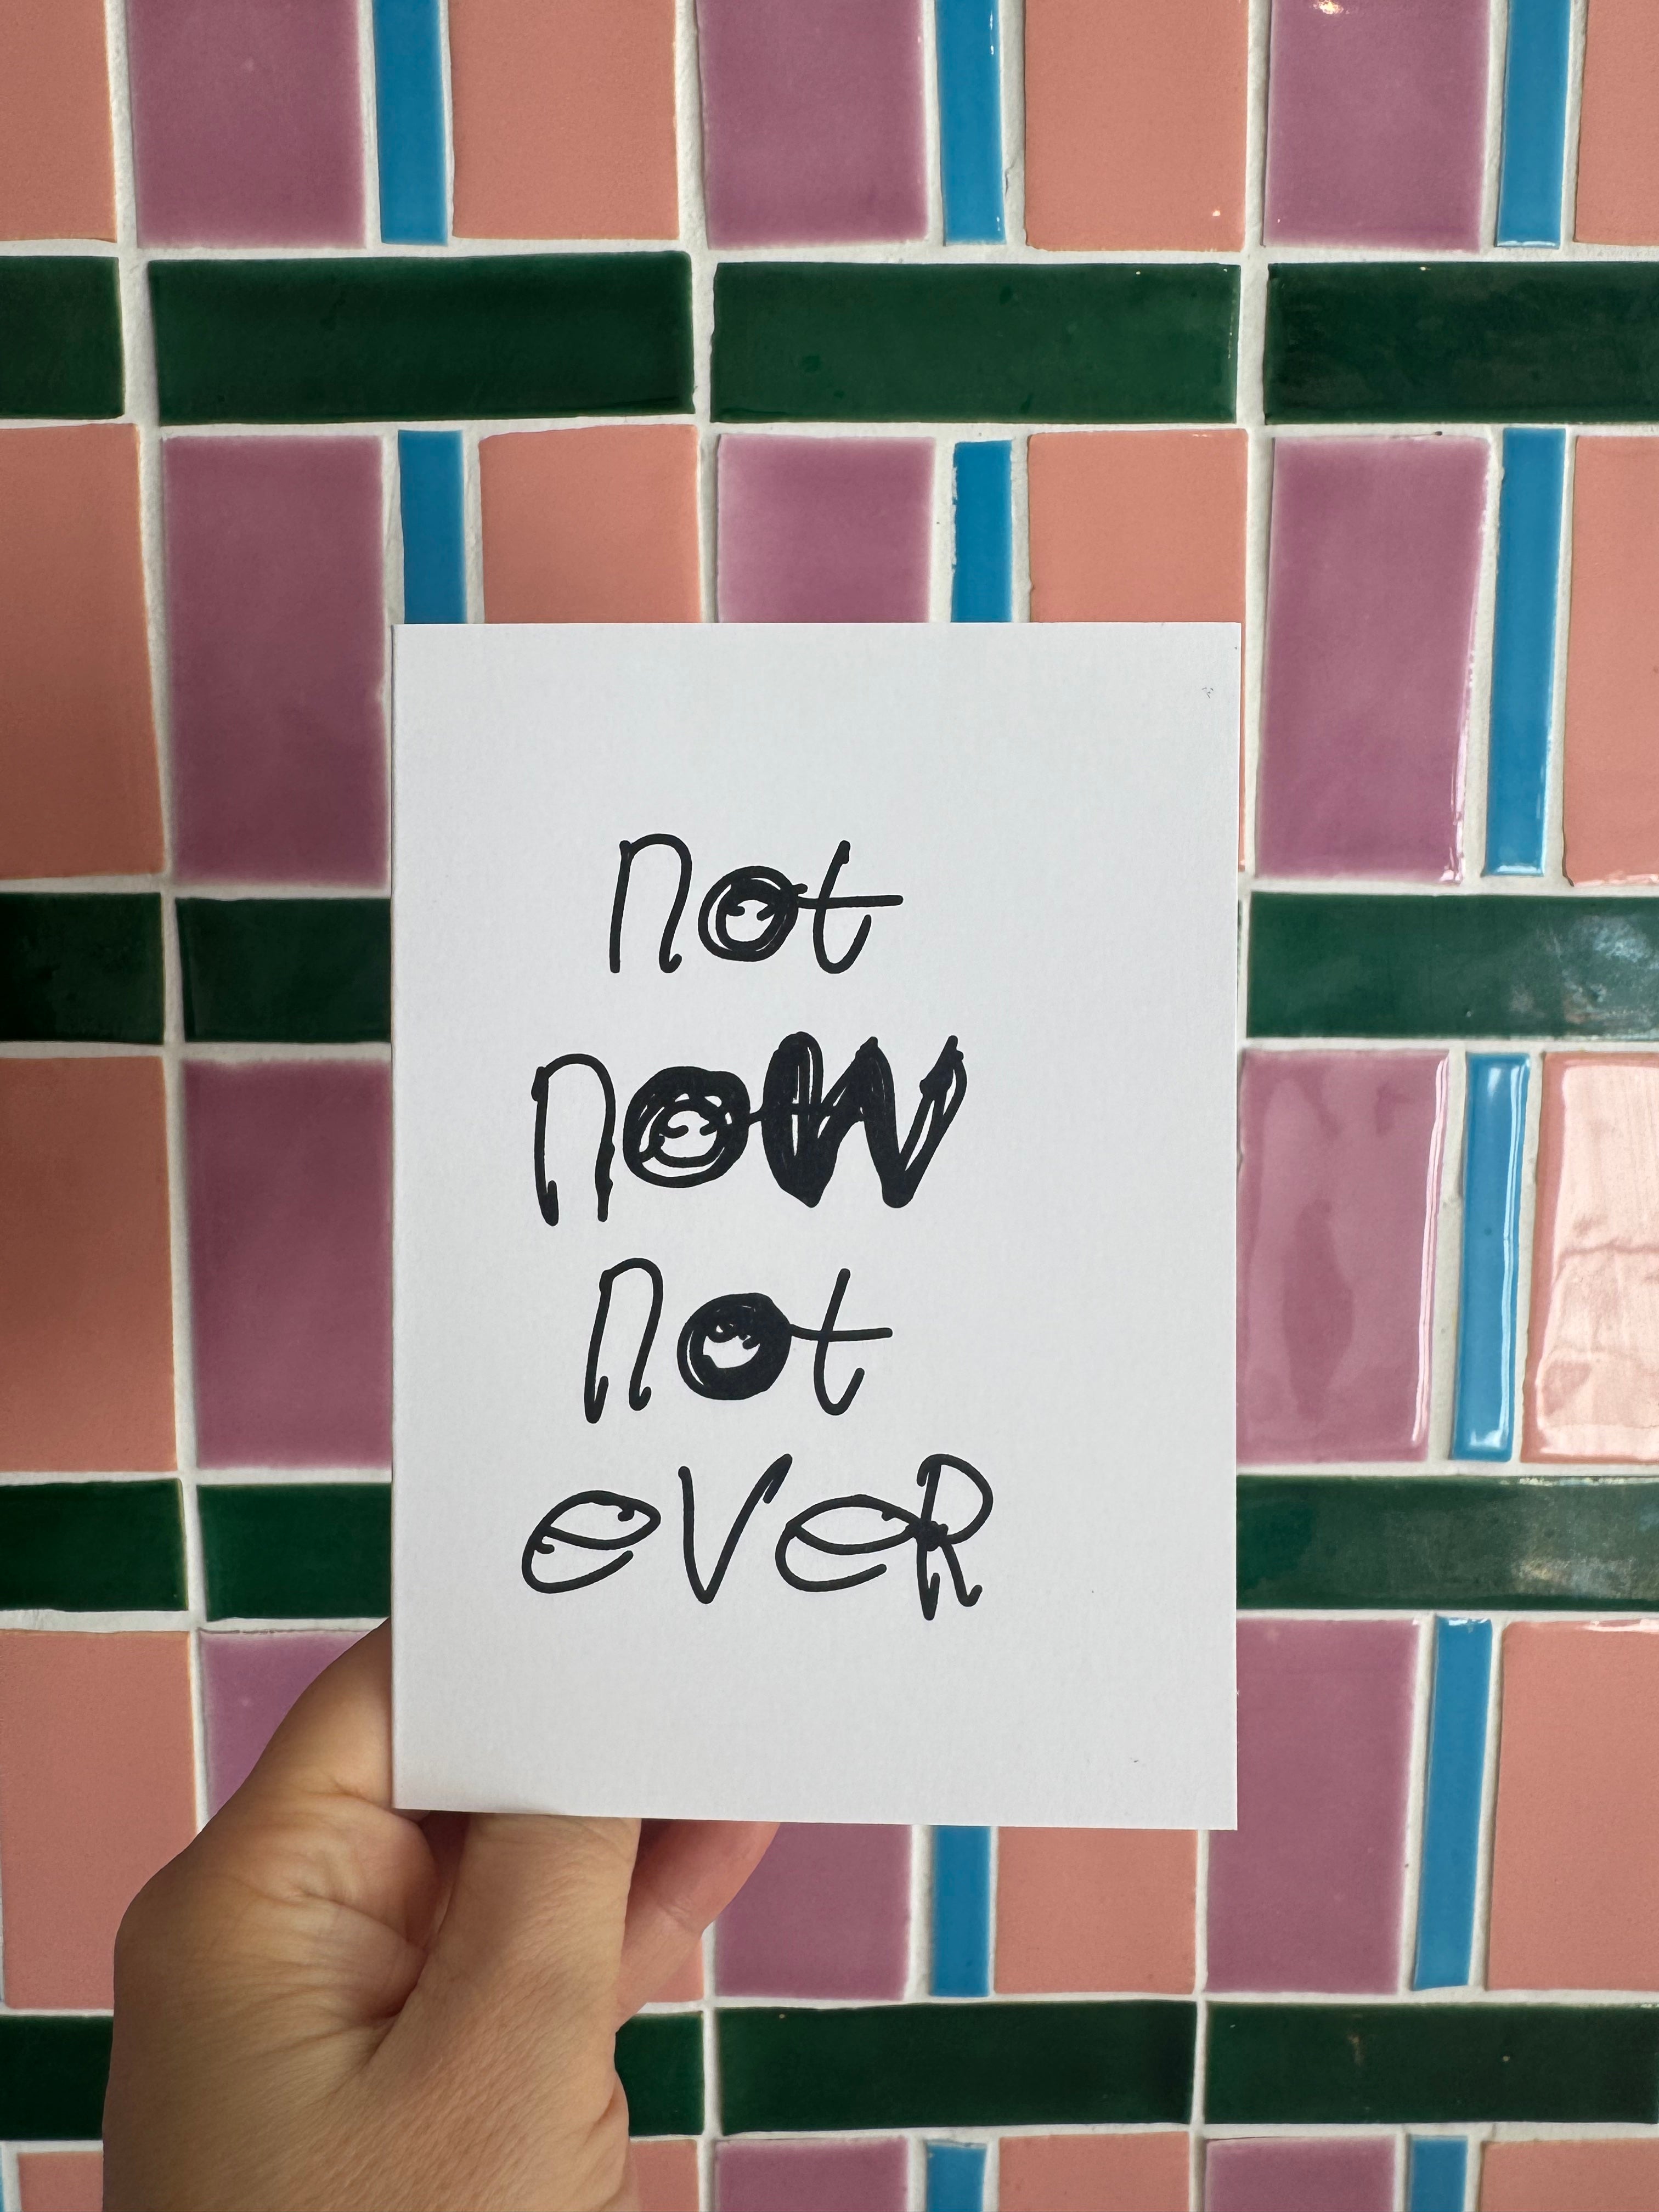 not
noW
not
eVeR